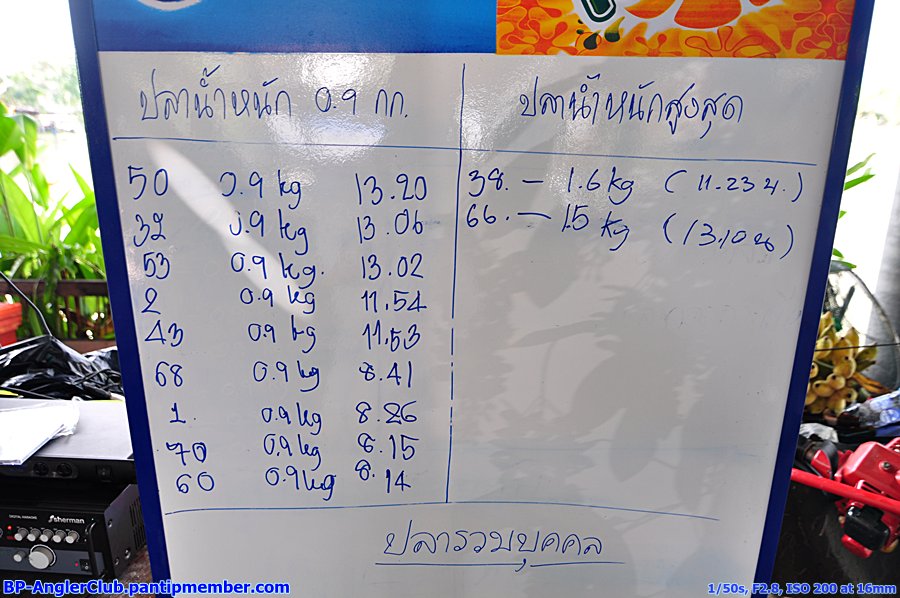 ปลาน้ำหนัก 0.9 กก.
50 0.9 kg 13.20
32 0.9 kg 13.06
53 0.9 kg. 13.02
2 0.9 kg 11.54
43 0.9 kg 11.53
68 0.9 kg 8.41
1. 0.9 kg 8.26
70 0.9 kg 8.15
60 0.9 kg 8.14
ปลาน้ำหนักสูงสุด
38. - 1.6 kg (11.23 น.)
66. - 1.5 kg (13.10 น)
ปลารวมบุคคล
DIGITAL KARAOKE
sherman
BP-AnglerClub.pantipmember.com
1/50s, F2.8, ISO 200 at 16mm